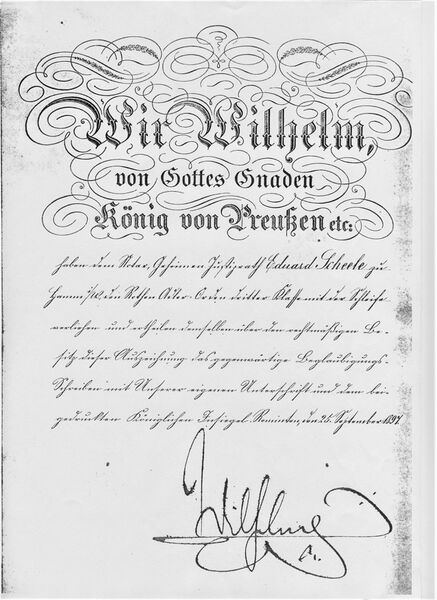 Wir Wilhelm,
von Gottes Gnaden
König von Preußen etc:
haben dem Notar, Geheimen Justizrath Eduard Scheele zu
Hamm i/W. den Rothen Adler-Orden dritter Klasse mit der Schleife
verliehen und ertheilen demselben über den rechtmäßigen Be-
sitz dieser Auszeichnung das gegenwärtige Beglaubigungs-
Schreiben mit Unserer eigenen Unterschrift und dem bei-
gedruckten Königlichen Insiegel. Rominten, den 25. September 1897
Wilhelm
R.